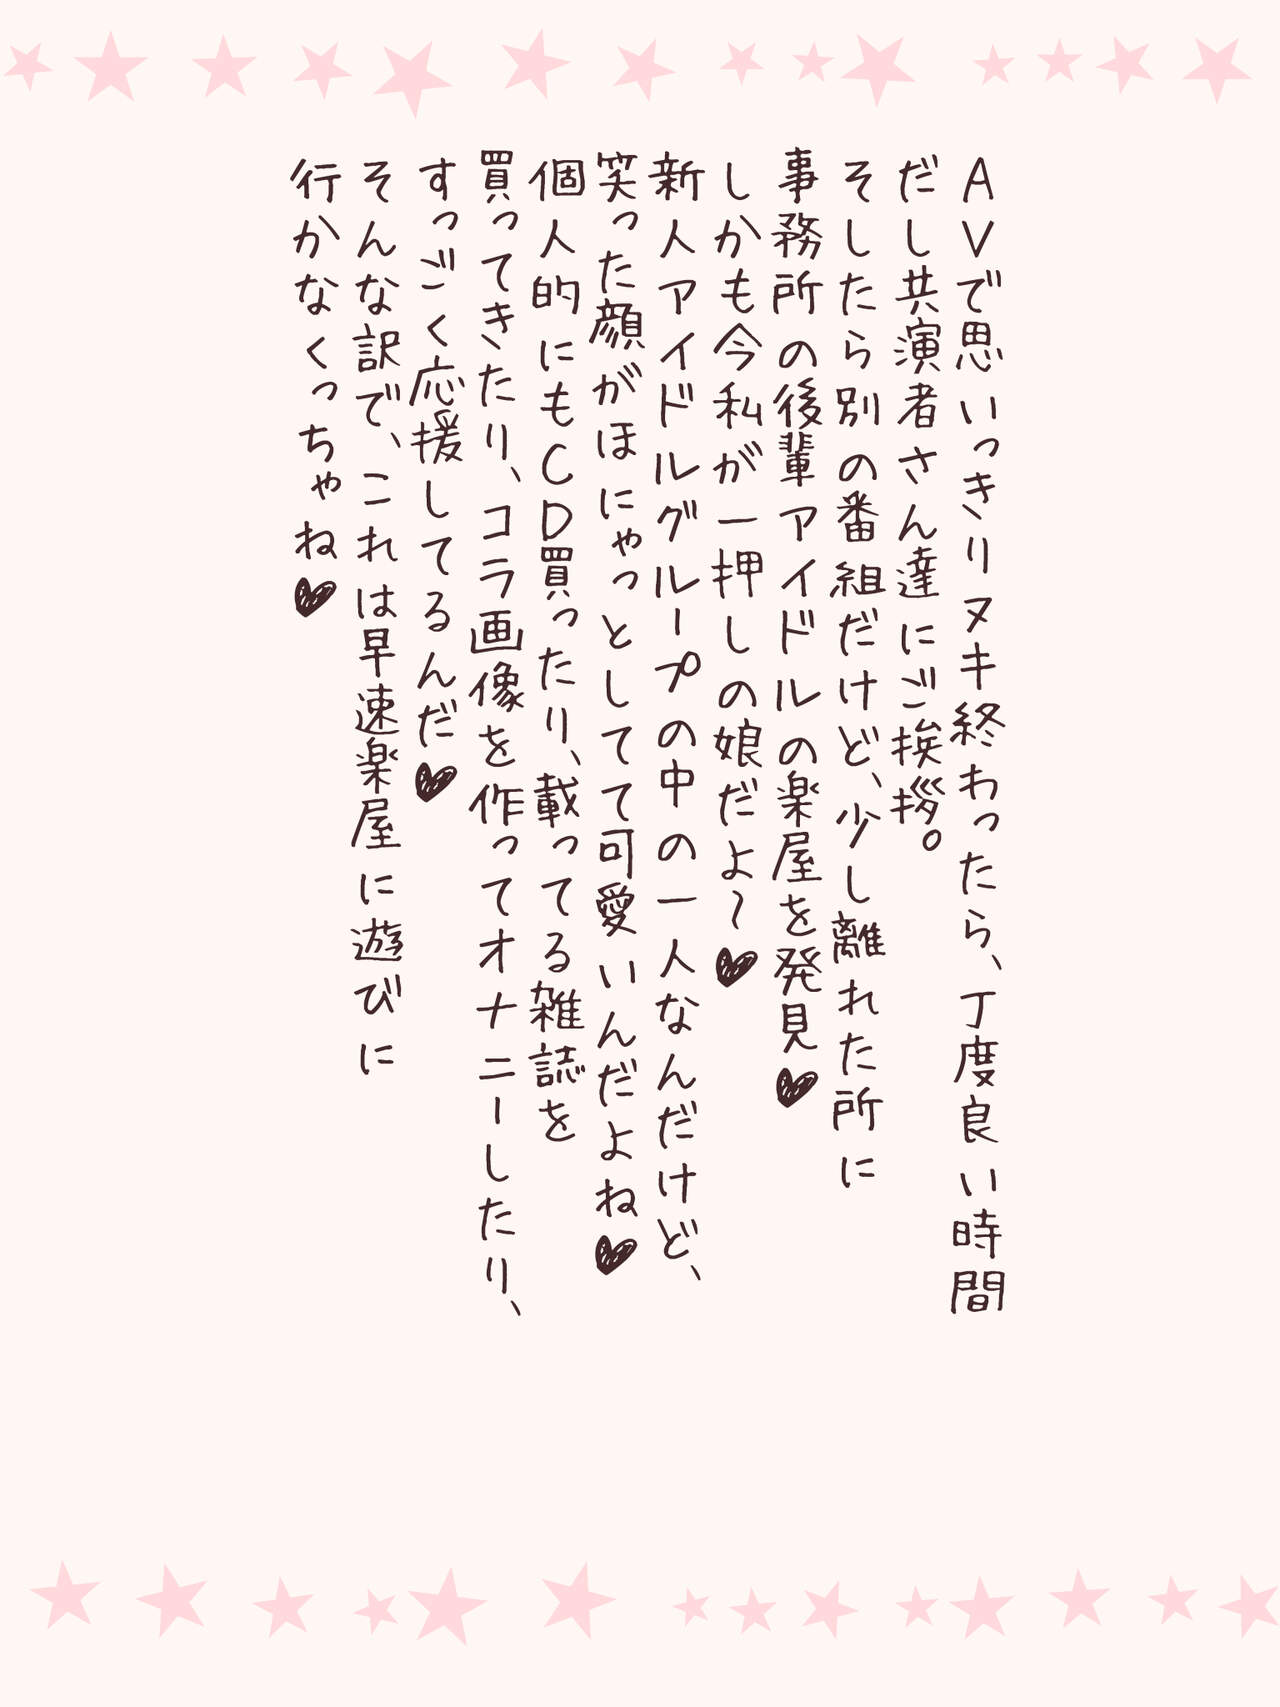 AVで思いっきりヌキ終わったら、丁度良い時間
だし共演者さん達にご挨拶。
そしたら別の番組だけど、少し離れた所に
事務所の後輩アイドルの楽屋を発見♥
しかも今私が一押しの娘だよ～♥
新人アイドルグループの中の一人なんだけど、
笑った顔がほにゃっとしてて可愛いんだよね♥
個人的にもCD買ったり、載ってる雑誌を
買ってきたり、コラ画像を作ってオナニーしたり、
すっごく応援してるんだ♥
そんな訳で、これは早速楽屋に遊びに
行かなくっちゃね♥